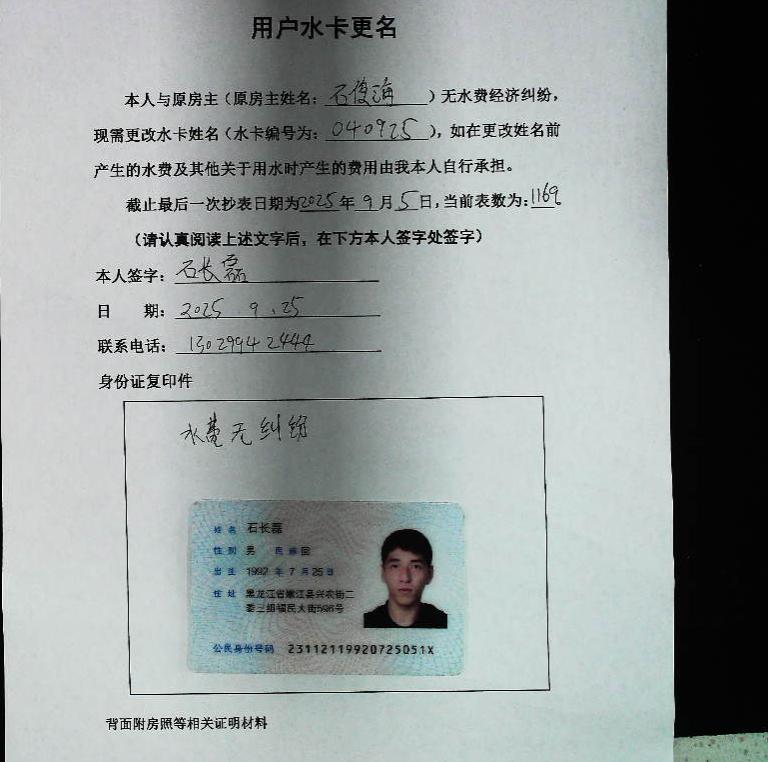 用户水卡更名
本人与原房主（原房主姓名：石俊海）无水费经济纠纷，
现需更改水卡姓名（水卡编号为：040925），如在更改姓名前
产生的水费及其他关于用水时产生的费用由我本人自行承担。
截止最后一次抄表日期为2025年9月5日，当前表数为：1169。
（请认真阅读上述文字后，在下方本人签字处签字）
本人签字：石长磊
日 期：2025.9.25
联系电话：13029942444
身份证复印件
水费无纠纷
姓名 石长磊
性别 男 民族 回
出生 1992年7月25日
住址 黑龙江省嫩江县兴农街二
委三组福民大街596号
公民身份号码 23112119920725051X
背面附房照等相关证明材料